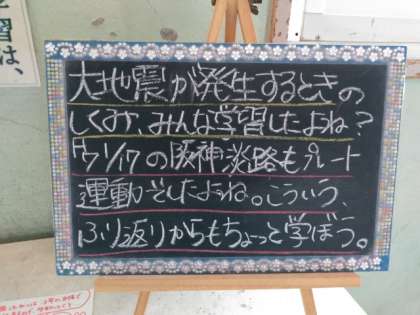 学習は、
大地震が発生するときの
しくみ、みんな学習したよね?
の阪神淡路もプレート
運動でしたよね。こういう、
ふり返りからもちょっと学ぼう。